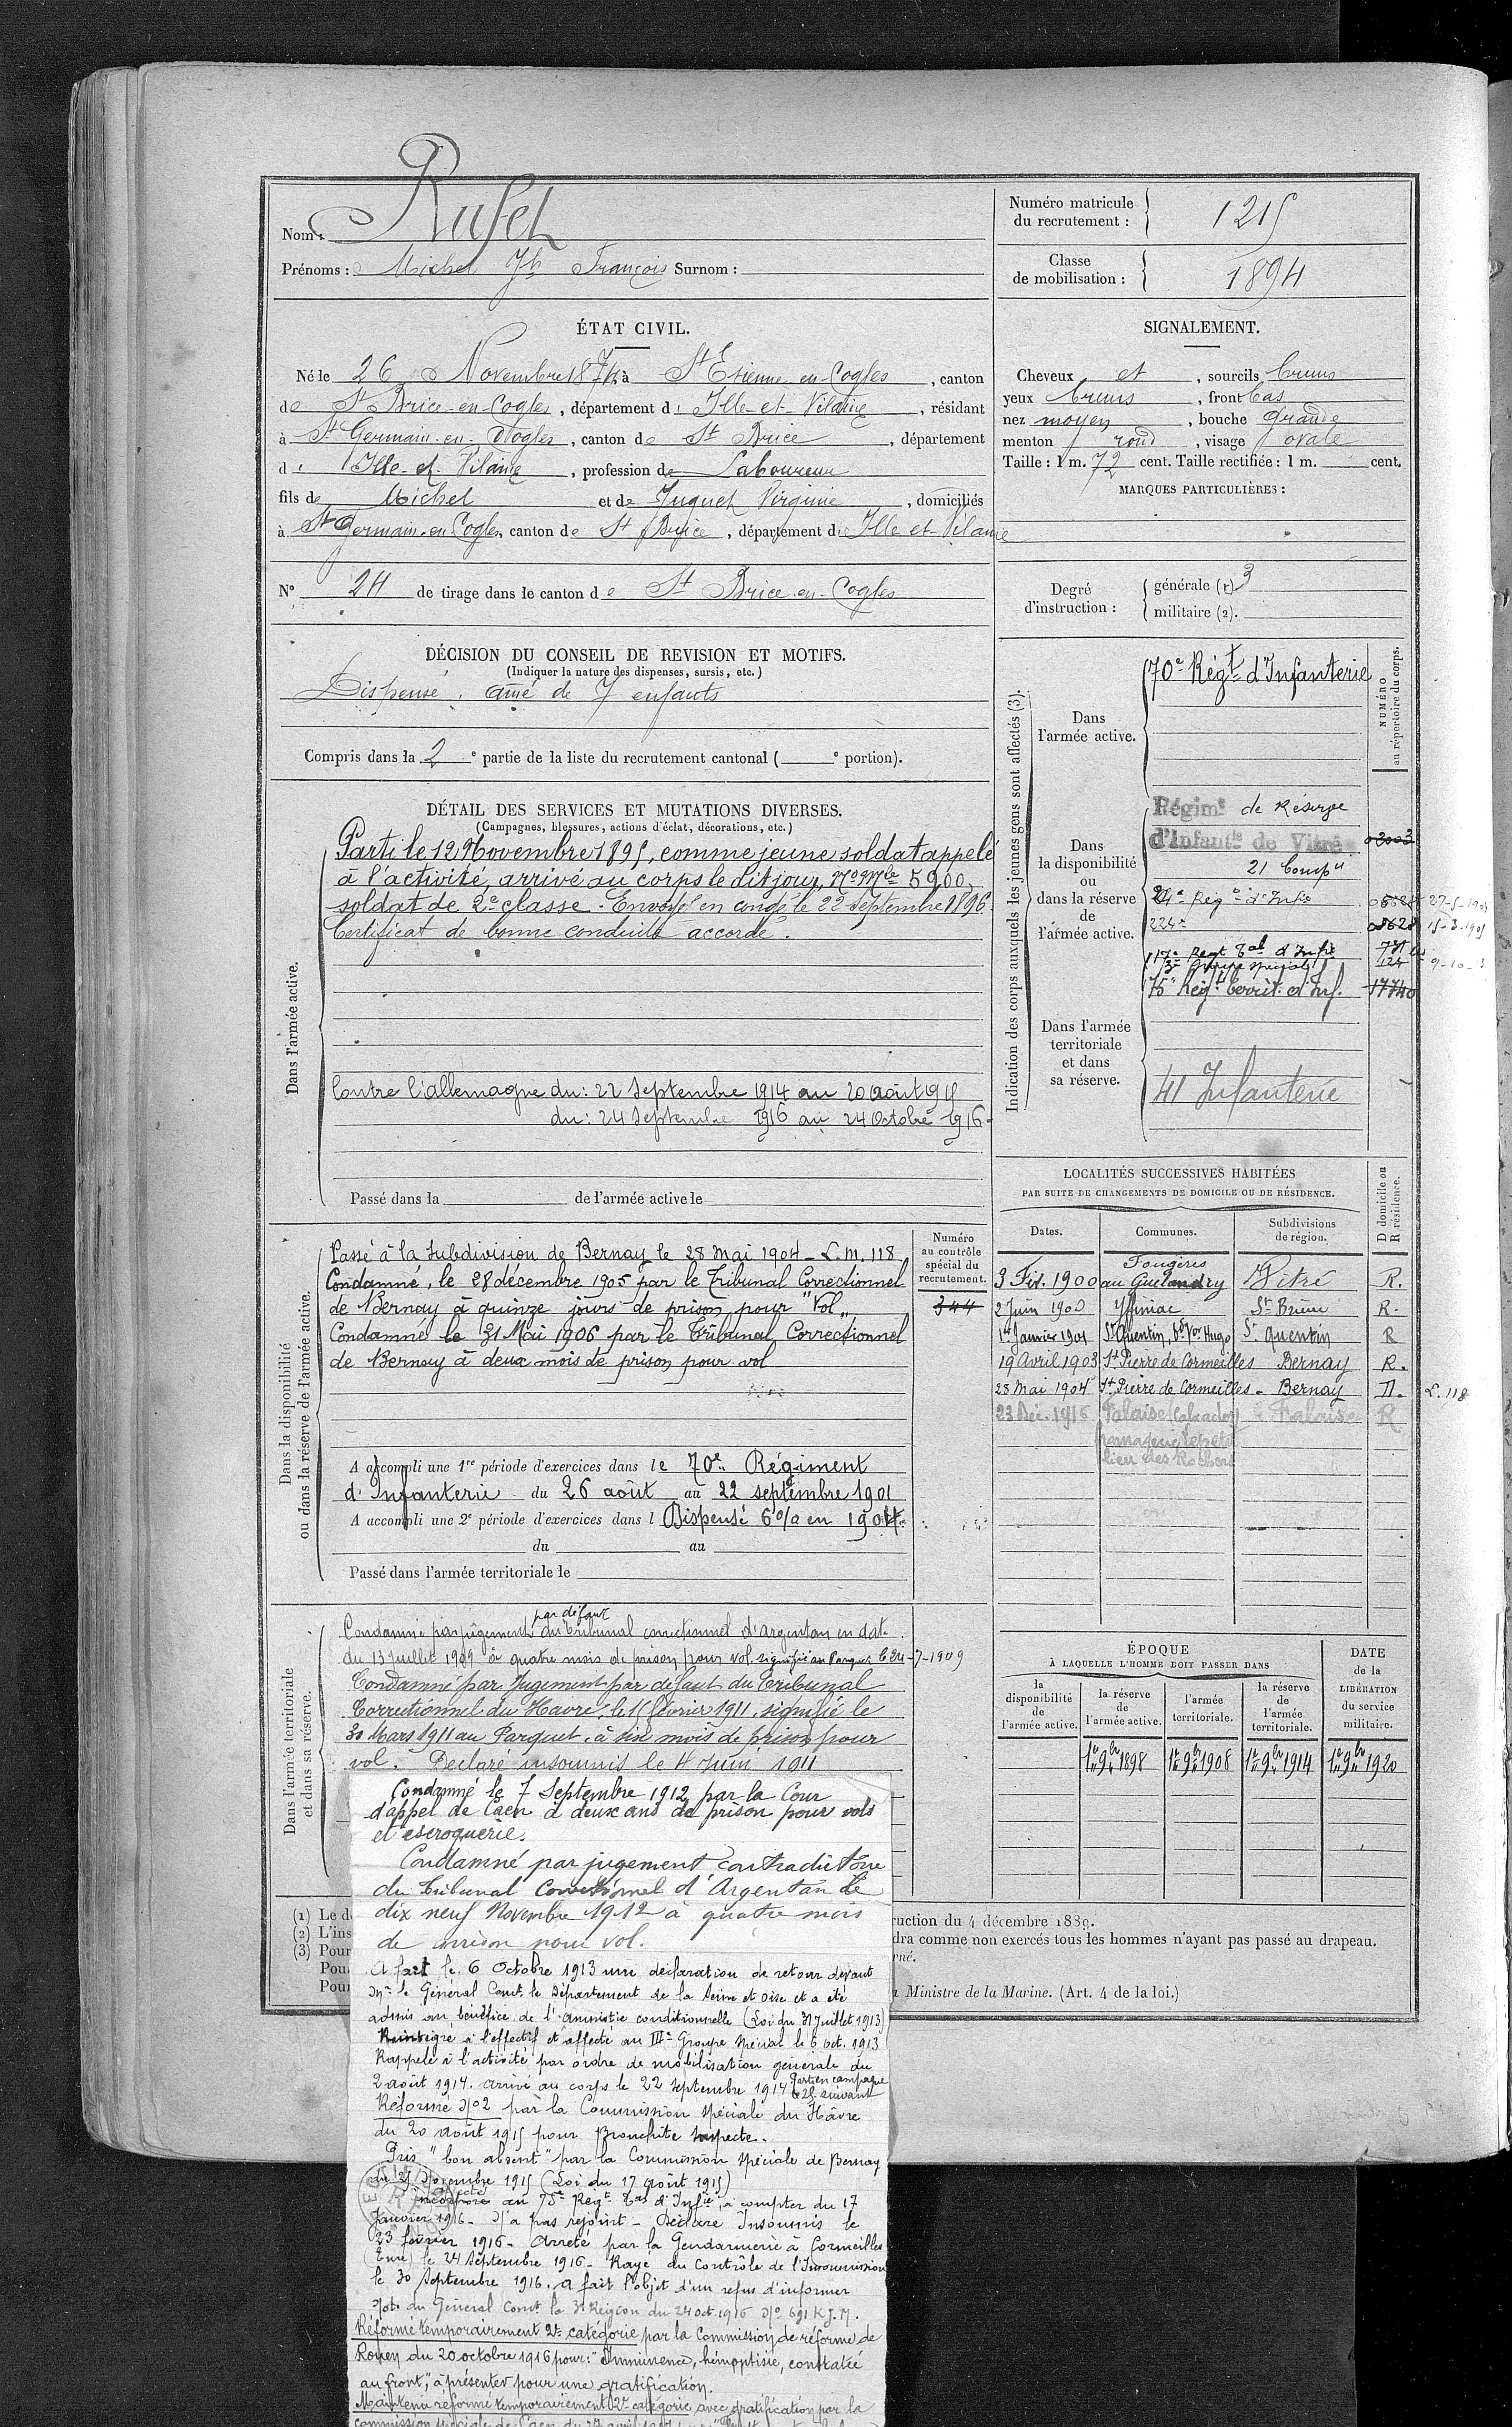 Nom : Rufel
Prénoms : Michel Jh François Surnom :
Numéro matricule du recrutement : 1215
Classe de mobilisation : 1894
ÉTAT CIVIL.
Né le 26 Novembre 1874 à St Etienne en Cogles, canton
de St Brice-en-Cogles, département d Ille-et-Vilaine, résidant
à St Germain-en-Cogles, canton de St Brice, département
d Ille-et-Vilaine, profession de Laboureur
fils de Michel et de Juguet Virginie, domiciliés
à St Germain-en-Cogles, canton de St Brice, département d Ille et Vilaine
N° 24 de tirage dans le canton de St Brice-en-Cogles
SIGNALEMENT.
Cheveux et, sourcils bruns
yeux bruns, front bas
nez moyen, bouche grande
menton rond, visage ovale
Taille : 1 m. 72 cent. Taille rectifiée : 1 m. cent.
MARQUES PARTICULIÈRES :
Degré d'instruction :
générale (1). 3
militaire (2).
DÉCISION DU CONSEIL DE REVISION ET MOTIFS.
(Indiquer la nature des dispenses, sursis, etc.)
Dispensé, aîné de 7 enfants
Compris dans la 2e partie de la liste du recrutement cantonal ( e portion).
DÉTAIL DES SERVICES ET MUTATIONS DIVERSES.
(Campagnes, blessures, actions d'éclat, décorations, etc.)
Dans l'armée active.
Parti le 12 Novembre 1895, comme jeune soldat appelé
à l'activité, arrivé au corps le dit jour, No Mle 5900,
soldat de 2e classe. Envoyé en congé le 22 Septembre 1896.
Certificat de bonne conduite accordé.
Contre l'allemagne du : 22 Septembre 1914 au 20 août 1915
du : 24 Septembre 1916 au 24 Octobre 1916
Passé dans la de l'armée active le
Indication des corps auxquels les jeunes gens sont affectés (3).
NUMÉRO au répertoire du corps.
Dans l'armée active.
70e Régt d'Infanterie
Dans la disponibilité ou dans la réserve de l'armée active.
Régimt de Réserve
d'Infantie de Vitré
21 Compie
224e
3e Groupe spécial
75e Régt territ. d'Inf. 17740
Dans l'armée territoriale et dans sa réserve.
41 Infanterie
LOCALITÉS SUCCESSIVES HABITÉES
PAR SUITE DE CHANGEMENTS DE DOMICILE OU DE RÉSIDENCE.
Dates. Communes. Subdivisions de région. D domicile ou R résidence.
3 Fév. 1900 Fougères au Guelandry Vitré R.
2 Juin 1900 Yffiniac St Brieuc R.
1er Janvier 1901 St Quentin, bd Vor Hugo St quentin R
19 Avril 1903 St Pierre de Cormeilles Bernay R.
28 Mai 1904 St Pierre de Cormeilles - Bernay D. L. 118
23 Déc. 1916 Falaise (Calvados) Falaise R
Dans la disponibilité ou dans la réserve de l'armée active.
Numéro au contrôle spécial du recrutement.
344
Passé à la Subdivision de Bernay le 28 Mai 1904 - L. m. 118
Condamné, le 28 décembre 1905 par le Tribunal Correctionnel
de Bernay à quinze jours de prison pour "Vol"
Condamné le 31 Mai 1906 par le Tribunal Correctionnel
de Bernay à deux mois de prison pour vol
A accompli une 1re période d'exercices dans le 70e Régiment
d'Infanterie du 26 août au 22 septembre 1901
A accompli une 2e période d'exercices dans l Dispensé 6% en 1904.
du au
Passé dans l'armée territoriale le
Dans l'armée territoriale et dans sa réserve.
Condamné par jugement par défaut du tribunal correctionnel d'argentan en date
du 13 juillet 1909 à quatre mois de prison pour vol. signifié au Parquet le 24-7-1909
Condamné par Jugement par défaut du Tribunal
Correctionnel du Havre, le février 1911, signifié le
30 Mars 1911 au Parquet, à six mois de prison pour
vol. Declaré insoumis le 4 Juin 1911
ÉPOQUE
À LAQUELLE L'HOMME DOIT PASSER DANS
la disponibilité de l'armée active. la réserve de l'armée active. l'armée territoriale. la réserve de l'armée territoriale. DATE de la LIBÉRATION du service militaire.
1er 9bre 1898 1er 9bre 1908 1er 9bre 1914 1er 9bre 1920
Condamné le 7 Septembre 1912 par la Cour
d'appel de Caen à deux ans de prison pour vols
et escroquerie.
Condamné par jugement contradictoire
du Tribunal Correctionnel d'Argentan le
dix neuf Novembre 1912 à quatre mois
de prison pour vol.
A fait le 6 Octobre 1913 une déclaration de retour devant
Mr le Général Comt le Département de la Seine et Oise et a été
admis au bénéfice de l'amnistie conditionnelle (Loi du 31 Juillet 1913)
Réintégré à l'effectif et affecté au IIIe Groupe Spécial le 6 oct. 1913
Rappelé à l'activité par ordre de mobilisation générale du
2 août 1914. arrivé au corps le 22 septembre 1914 Parti en campagne le 25 suivant
Réformé No 2 par la Commission Spéciale du Hâvre
du 20 août 1915 pour Bronchite suspecte.
Pris "bon absent" par la Commission spéciale de Bernay
du Novembre 1915 (Loi du 17 août 1915)
affecté au 75e Regt Tal d'Infie, à compter du 17
Janvier 1916. N'a pas rejoint - Déclaré Insoumis le
23 février 1916. Arreté par la Gendarmerie à Cormeilles
Eure) le 24 Septembre 1916 - Rayé du Contrôle de l'Insoumission
le 30 Septembre 1916. a fait l'objet d'un refus d'informer
Note du Général Comt la 3e Région du 24 oct. 1916 No 691 K J. M.
Réformé temporairement 2e catégorie par la Commission de réforme de
Rouen du 20 octobre 1916 pour : "Imminence, hémoptisie, constatée
au front", à présenter pour une gratification.
Maintenu réformé temporairement 2e catégorie avec gratification par la
commission spéciale de Caen du 27 avril
(1) Le d
(2) L'ins
(3) Pour
Pou
Pour
ruction du 4 décembre 1889.
dra comme non exercés tous les hommes n'ayant pas passé au drapeau.
rné.
Ministre de la Marine. (Art. 4 de la loi.)